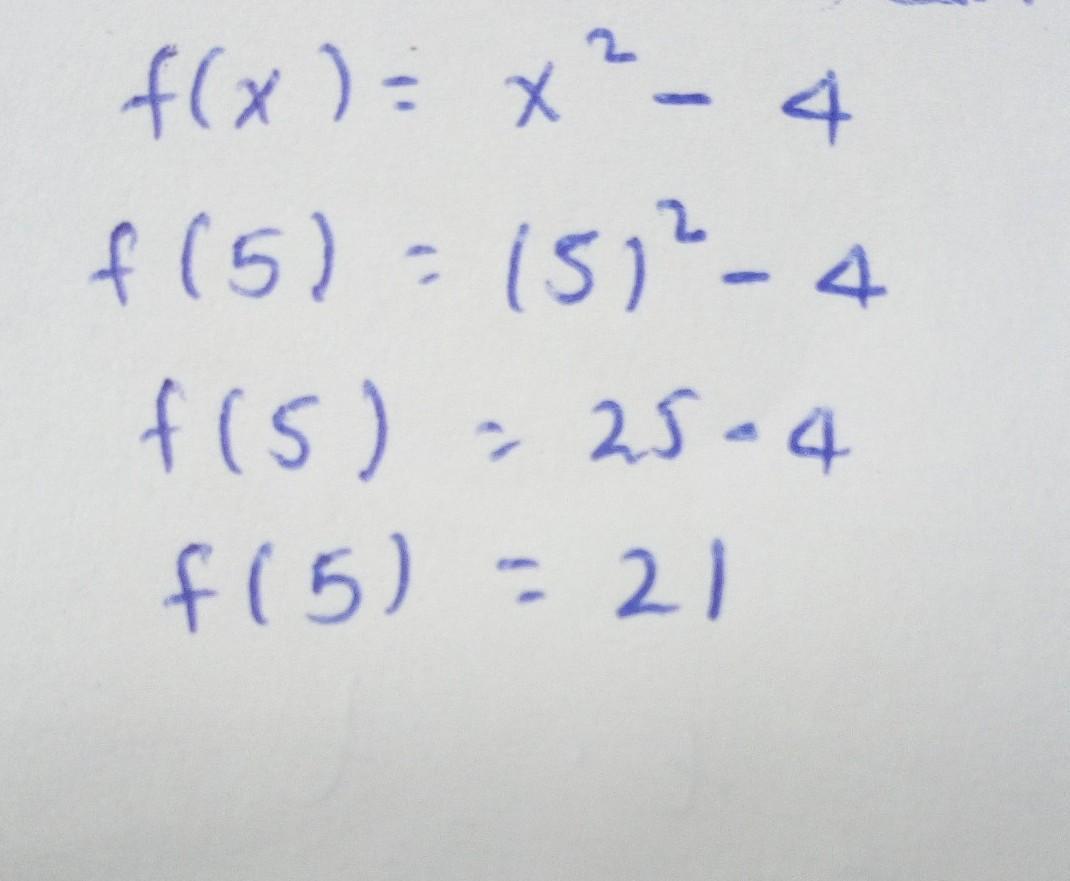 f(x) = x² - 4
f(5) = (5)² - 4
f(5) = 25 - 4
f(5) = 21